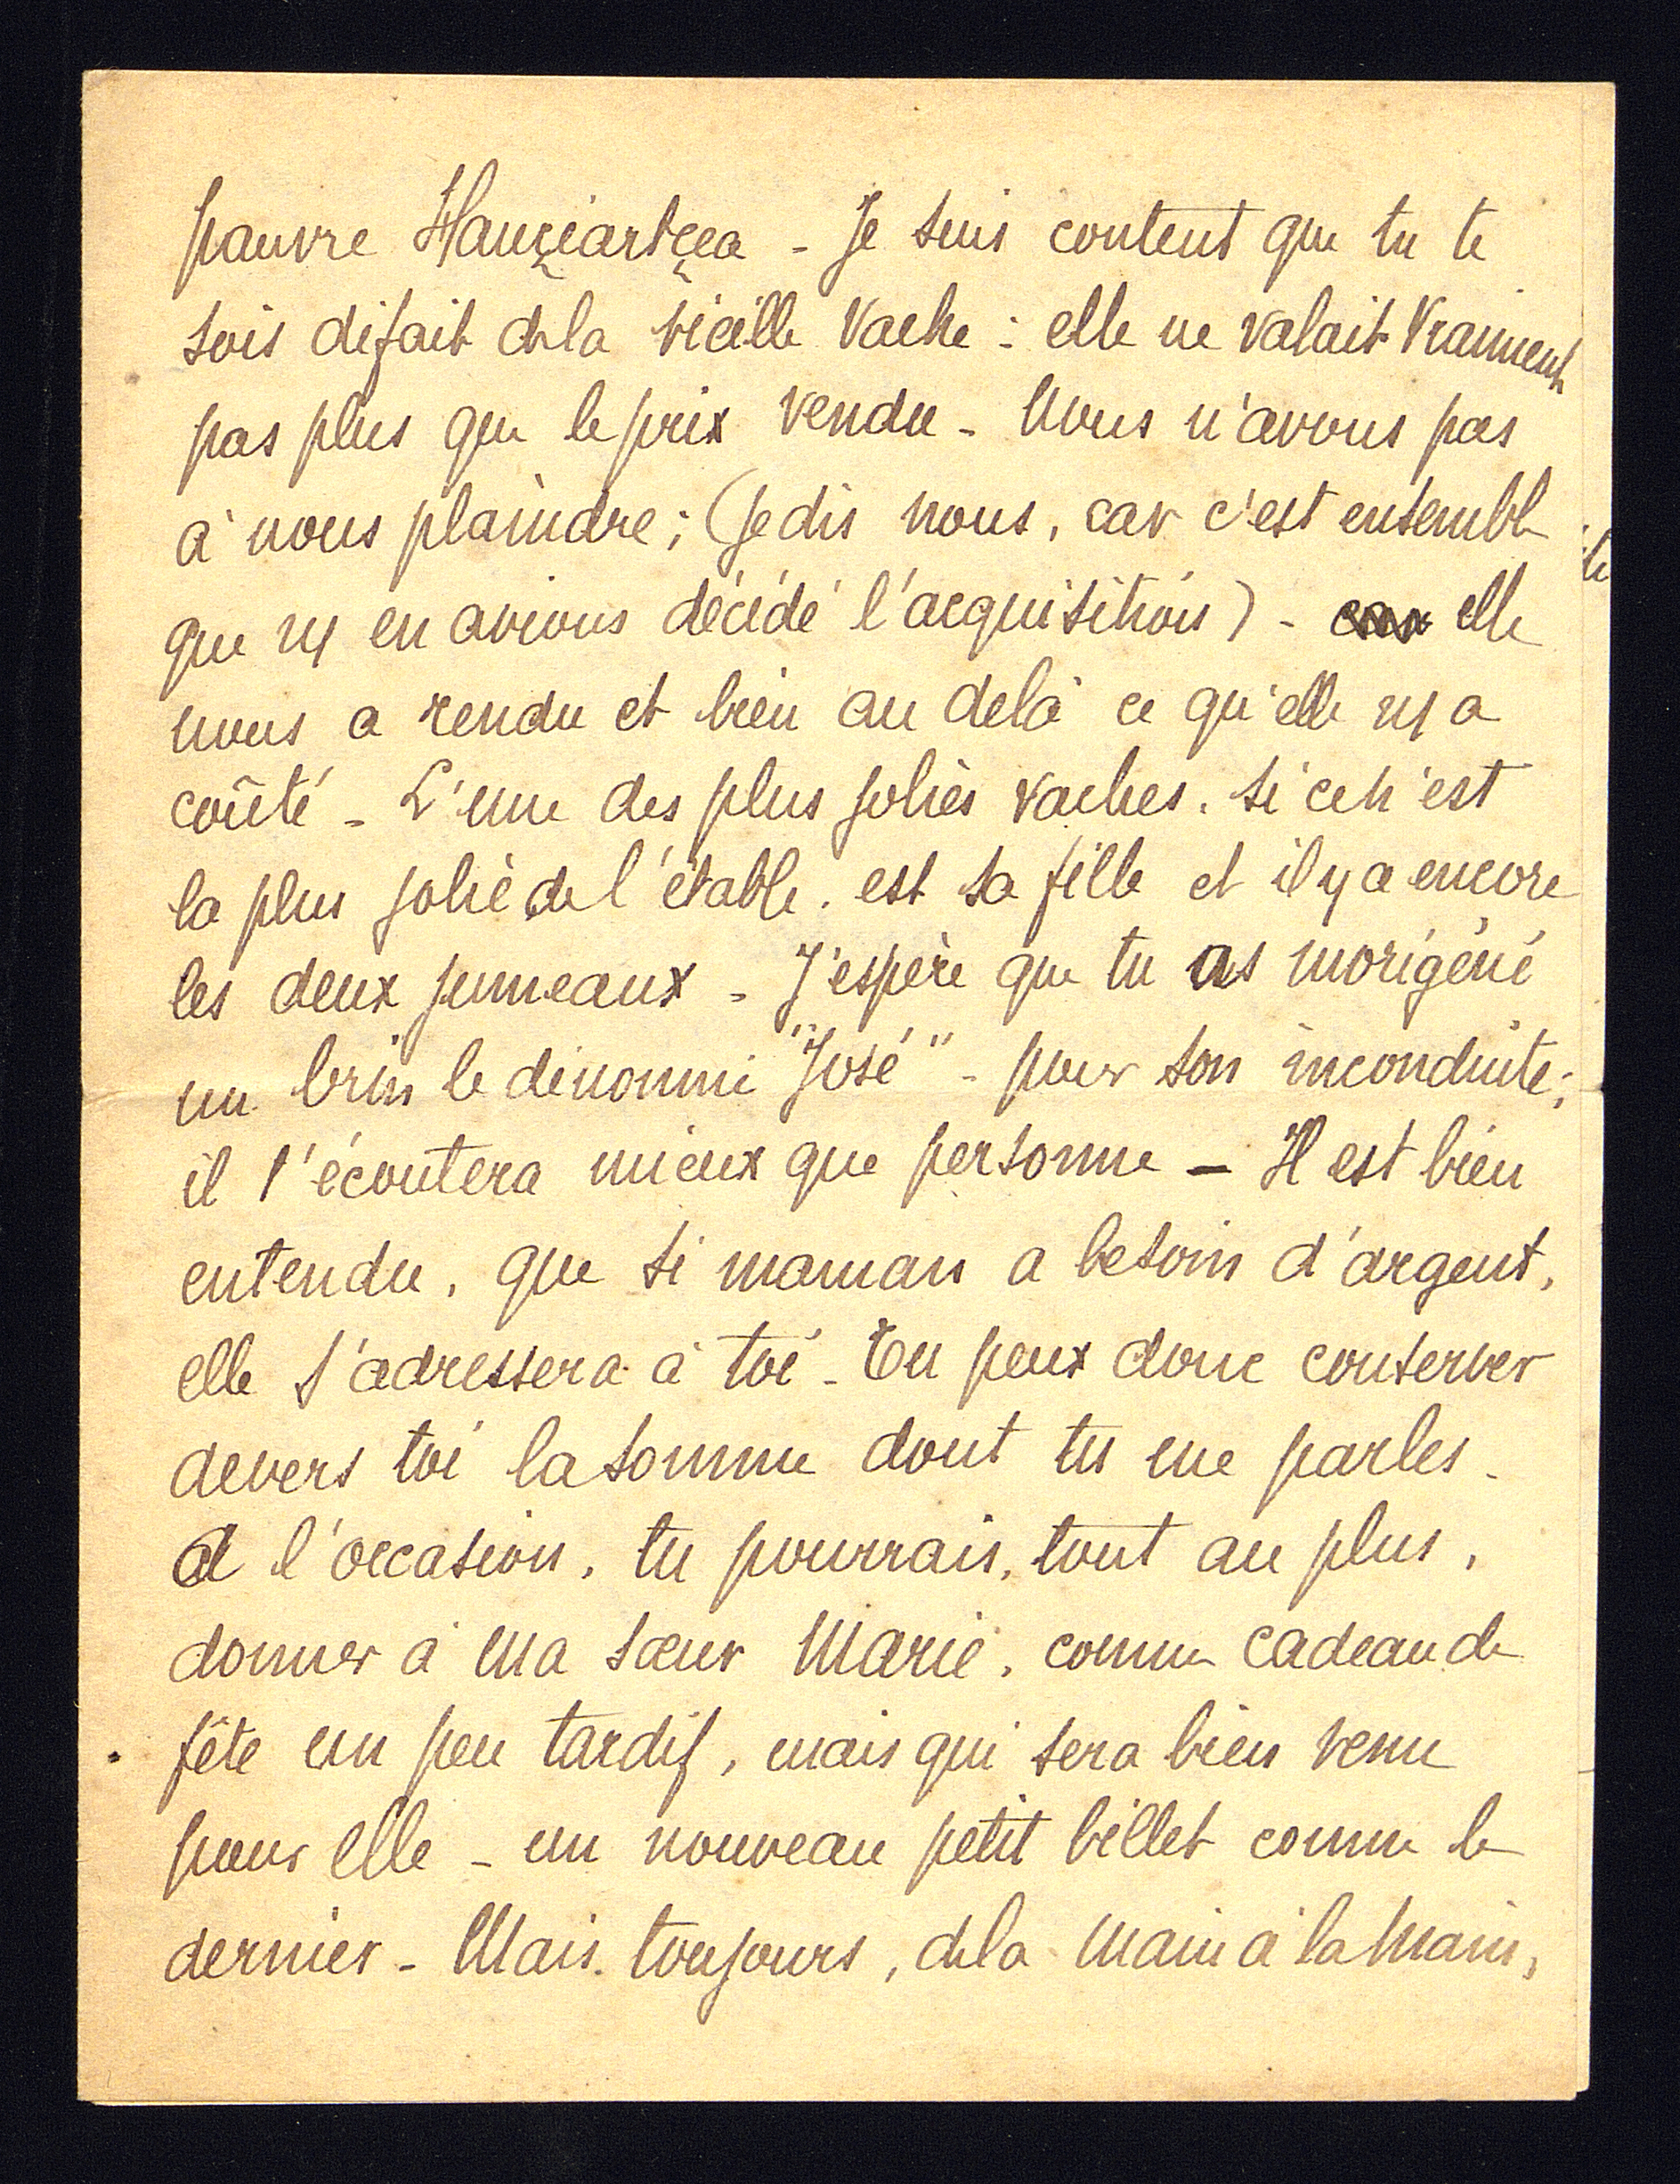 pauvre Hauziartzea - Je suis content que tu te
sois défait de la vieille vache : elle ne valait vraiment
pas plus que le prix vendu - Nous n'avons pas
à nous plaindre ; (je dis nous, car c'est ensemble
que ns en avions décidé l'acquisition) - car elle
nous a rendu et bien au delà ce qu'elle ns a
coûté - L'une des plus jolies vaches, si ce n'est
la plus jolie de l'étable, est sa fille et il y a encore
les deux jumeaux - J'espère que tu as morigéné
un brin le dénommé "José" - pour son inconduite ;
il t'écoutera mieux que personne - Il est bien
entendu, que si maman a besoin d'argent,
elle s'adressera à toi - Tu peux donc conserver
devers toi la somme dont tu me parles -
A l'occasion, tu pourrais, tout au plus,
donner à ma sœur Marie, comme cadeau de
fête un peu tardif, mais qui sera bien venu
pour elle - un nouveau petit billet comme le
dernier - Mais toujours, de la main à la main,